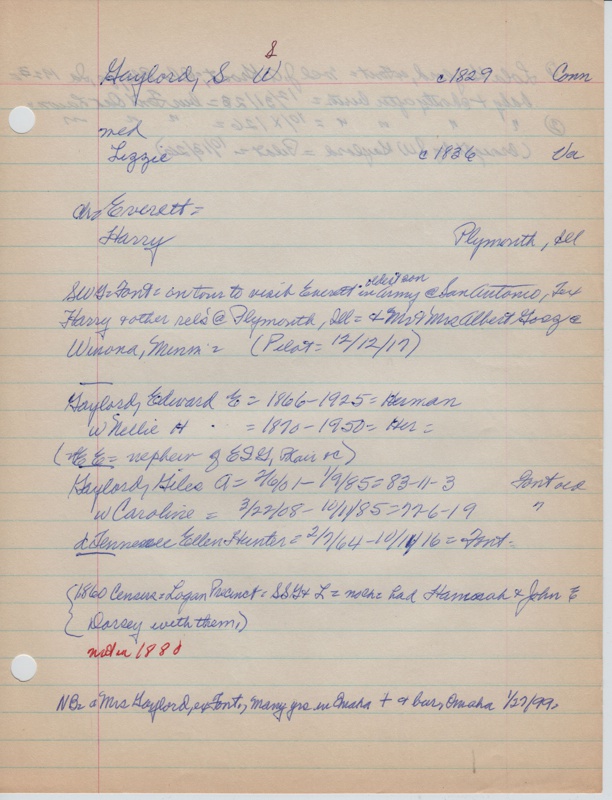 S
Gaylord, S W c1829 Conn
med
Lizzie c1836 Va
ch Everett =
Harry Plymouth, Ill
oldest son
SWG = Font = on tour to visit Everett in Army @ San Antonio, Tex
Harry & other rels @ Plymouth, Ill = & Mr & Mrs Albert @
Winona, Minn = (Pilot = 12/12/17)
Gaylord, Edward E = 1866-1925 = Herman
w Nellie H = 1870-1950 = Her =
(EE = nephew of EGG, Blair)
Gaylord, Giles A = 2/6/01 - 1/9/85 = 83-11-3 Font
w Caroline = 3/22/08 - 10/11/85 = 77-6-19 "
d Tennessee Ellen Hunter = 2/7/64 - 10/ /16 = Font =
(1860 Census = Logan Precinct = SSG & L = no ch = had Hannah & John E
Dorsey with them.)
not in 1880
NB = a Mrs Gaylord, ex Font., many yrs in Omaha + & bur, Omaha 1/27/99.